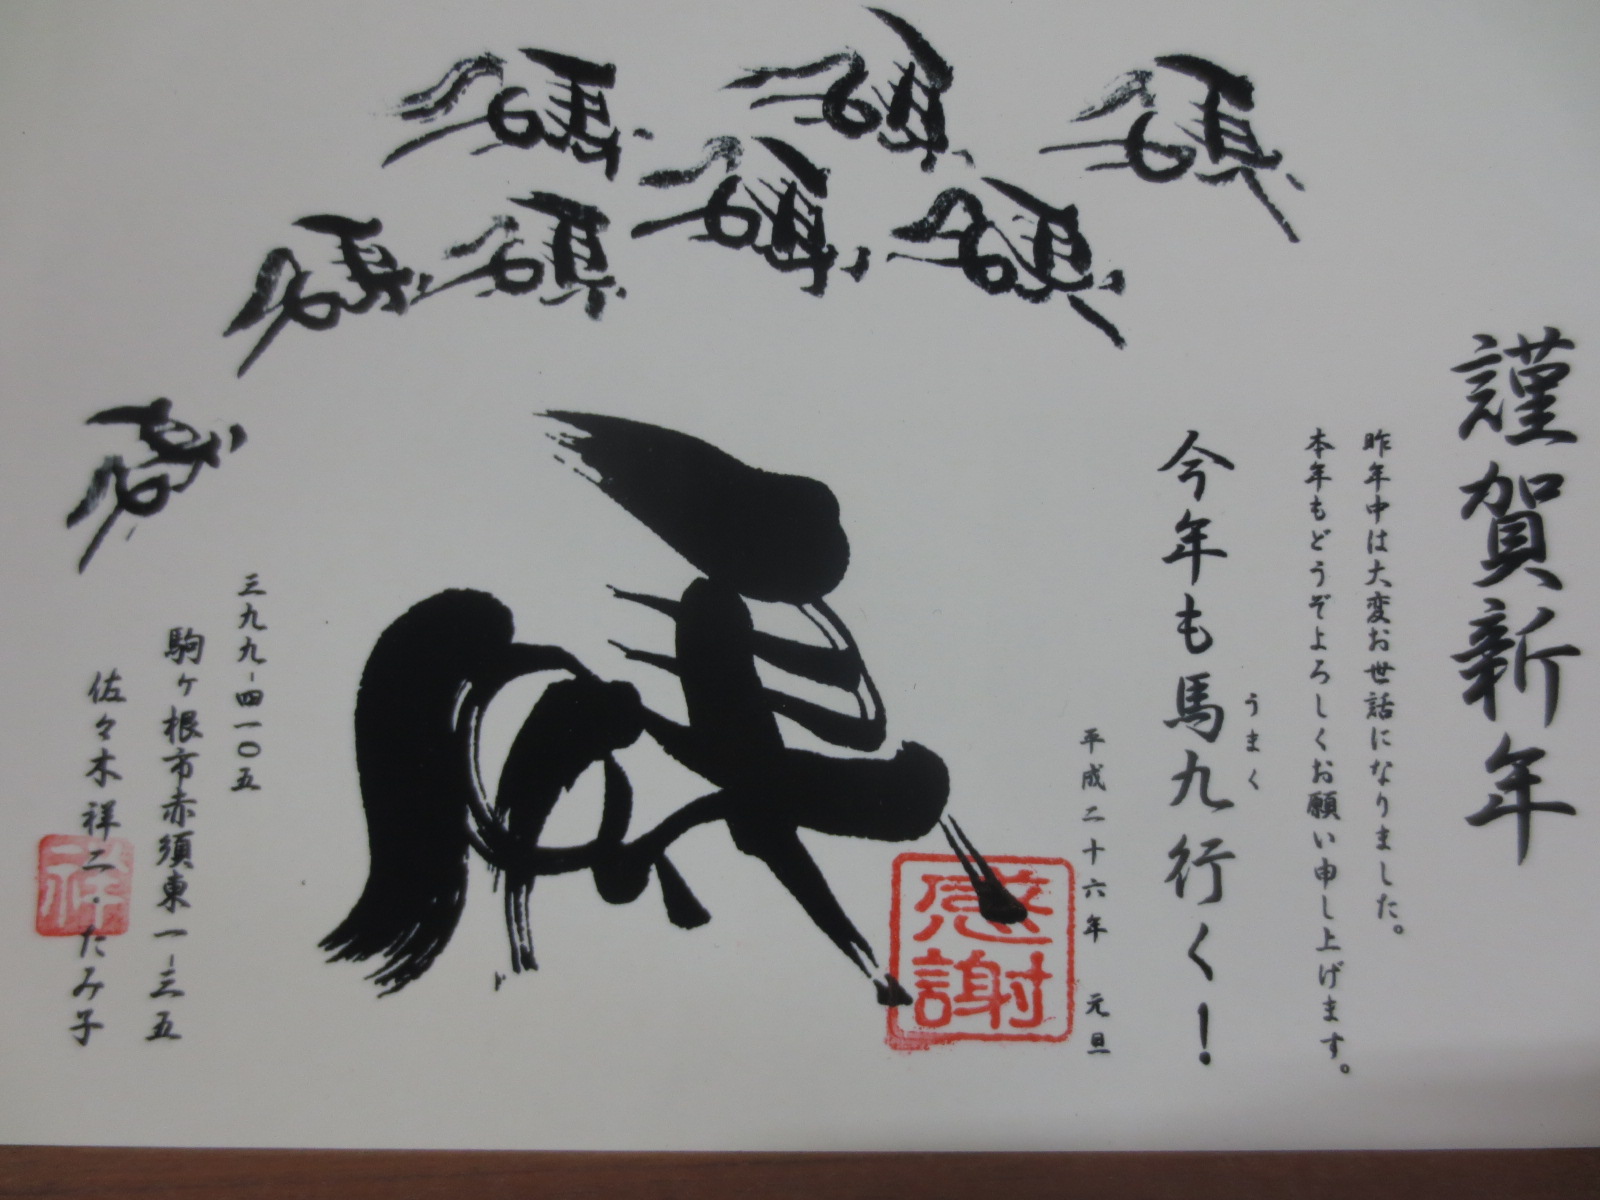 謹賀新年
昨年中は大変お世話になりました。
本年もどうぞよろしくお願い申し上げます。
今年も馬九行く!
うまく
平成二十六年 元旦
感謝
三九九-四一〇五
駒ヶ根市赤須東一-三五
佐々木祥二・たみ子
祥